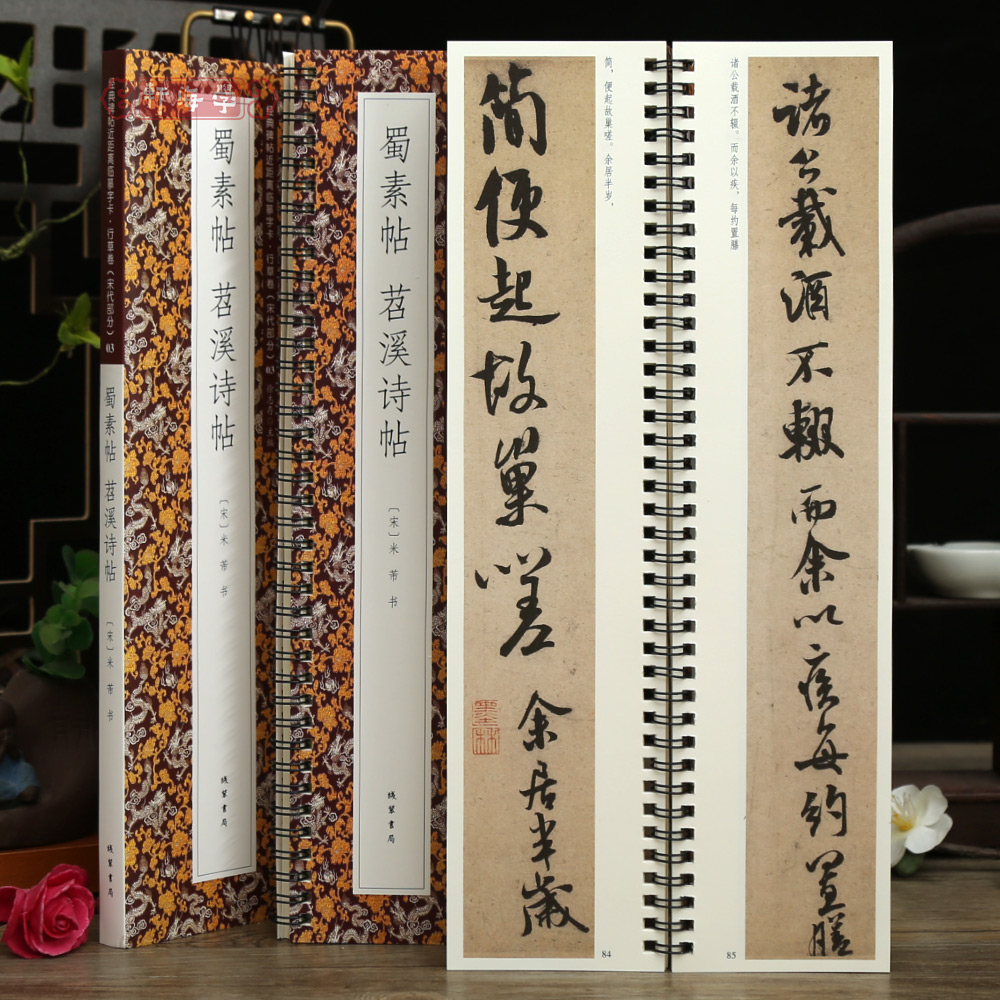 经典碑帖近距离临摹字卡·行草卷（宋代部分）03
蜀素帖 苕溪诗帖
〔宋〕米芾书
线装书局
蜀素帖 苕溪诗帖
〔宋〕米芾书
经典碑帖近距离临摹字卡·行草卷（宋代部分）03
蜀素帖 苕溪诗帖
〔宋〕米芾书
线装书局
简便起故巢嗟余居半岁
简，便起故巢嗟。余居半岁，
84
诸公载酒不辍。而余以疾，每约置膳
诸公载酒不辍而余以疾每约置膳
85